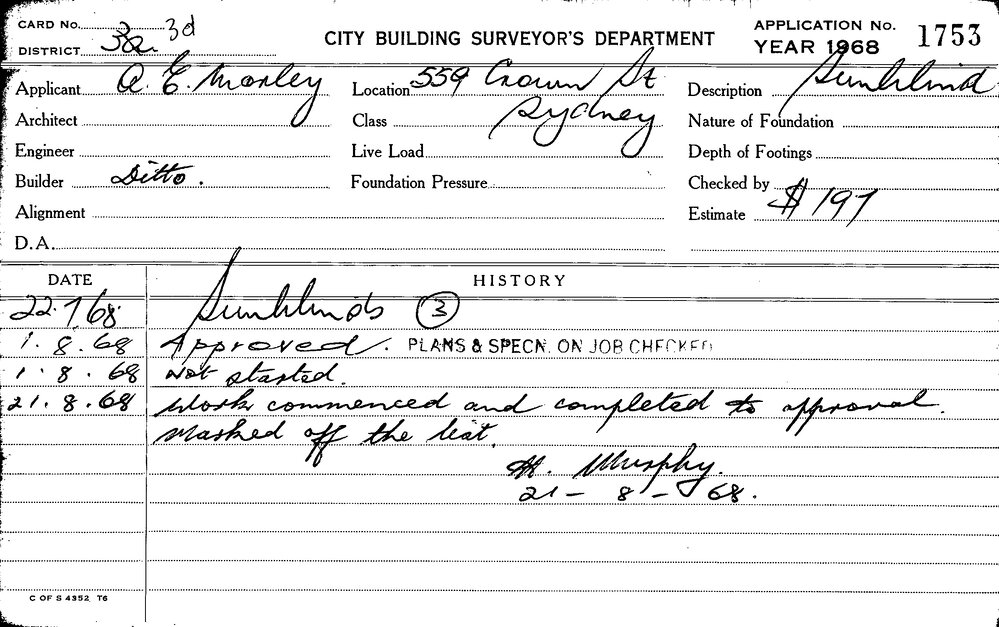 CARD No. 3d
DISTRICT 3a.
CITY BUILDING SURVEYOR'S DEPARTMENT
APPLICATION No. 1753
YEAR 1968
Applicant A. E. Morley
Location 559 Crown St
Sydney
Description Sunblind
Architect
Class
Nature of Foundation
Engineer
Live Load
Depth of Footings
Builder Ditto.
Foundation Pressure
Checked by
Alignment
Estimate $197
D.A.
DATE HISTORY
22.7.68. Sunblinds 3
1.8.68 Approved. PLANS & SPECN. ON JOB CHECKED
1.8.68 Not started.
21.8.68 Work commenced and completed to approval.
Marked off the list.
H. Murphy.
21-8-68.
C OF S 4352 T6